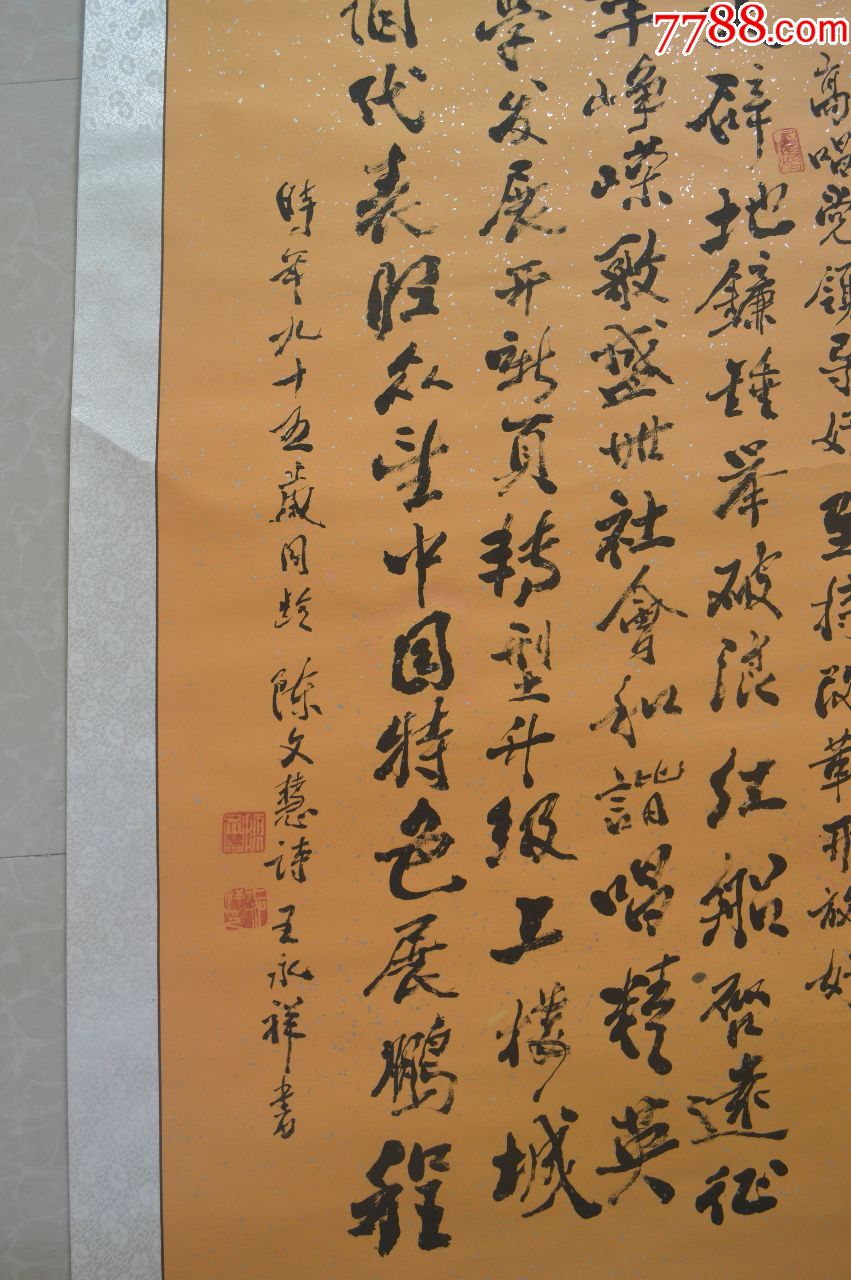 7788.com
高唱党领导好 坚持改革开放好
辟地镰锤举破浪红船启远征
年峥嵘歌盛世社会和谐唱精英
学发展开新页转型升级上楼城
代表旺众望中国特色展鹏程
時年九十五歲同龄 陈文慧詩 王永祥書